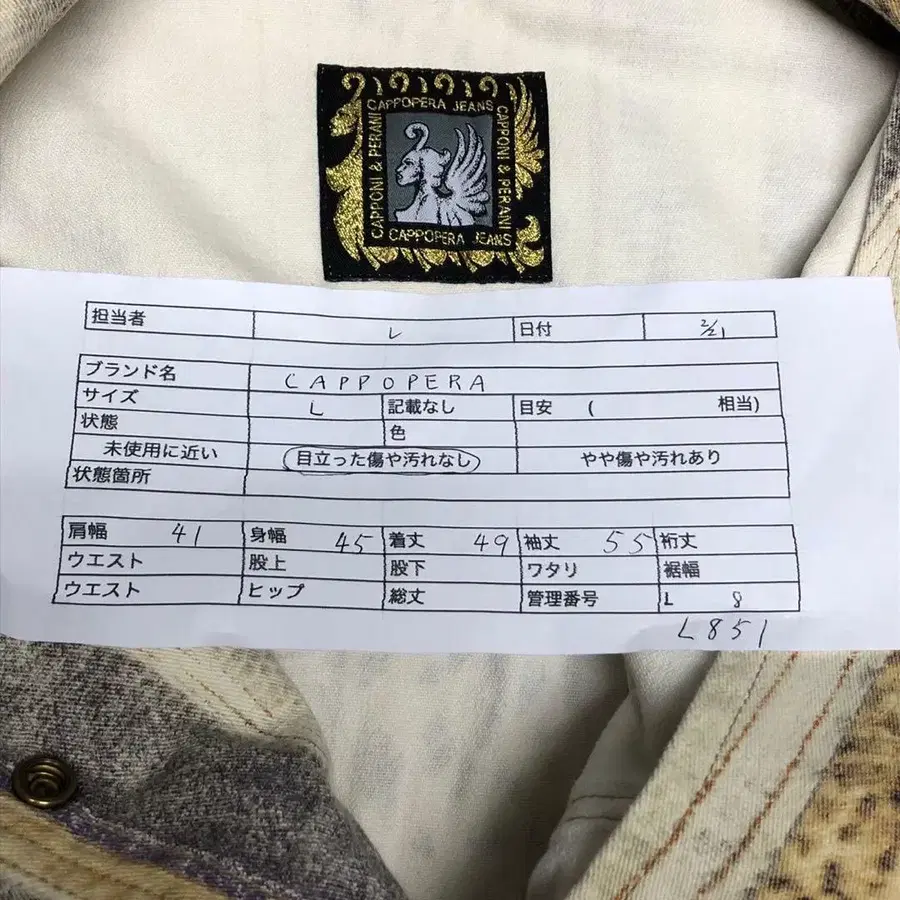 CAPPOPERA JEANS
CAPPONI & PERANI
CAPPONI & PERANI
CAPPOPERA JEANS
担当者 L 日付 2/21
ブランド名 CAPPOPERA
サイズ L 記載なし 目安 ( 相当)
状態 色
未使用に近い 目立った傷や汚れなし やや傷や汚れあり
状態箇所
肩幅 41 身幅 45 着丈 49 袖丈 55 裄丈
ウエスト 股上 股下 ワタリ 裾幅
ウエスト ヒップ 総丈 管理番号 L 8
L851